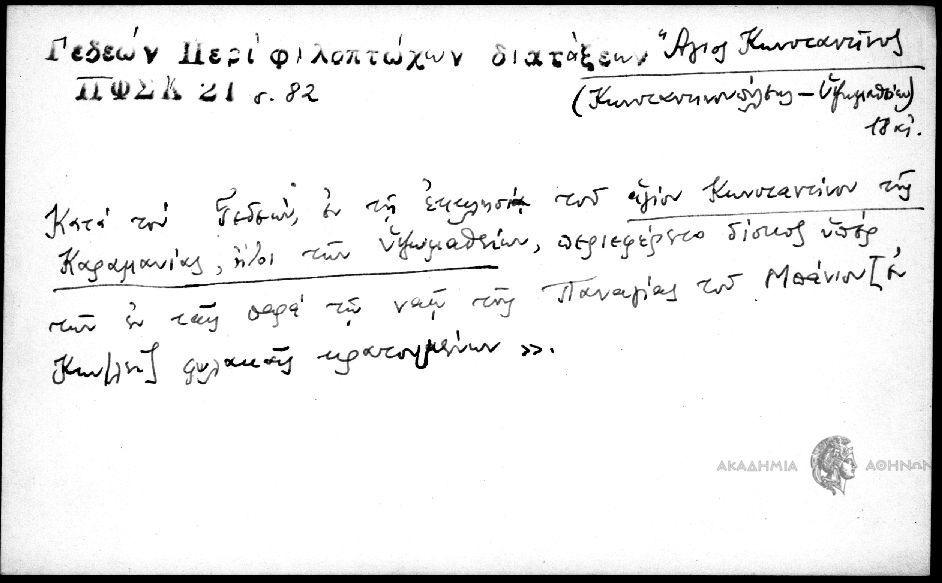 Γεδεών Περί φιλοπτώχων διατάξεων
ΠΦΣΚ 21 σ. 82
Ἅγιος Κωνσταντῖνος
(Κωνσταντινουπόλεως – Ὑψωμαθείων)
18 αἰ.
Κατά τόν Γεδεών, ἐν τῇ ἐκκλησίᾳ τοῦ ἁγίου Κωνσταντίνου τῆς
Καραμανίας, ἤτοι τῶν Ὑψωμαθείων, περιεφέρετο δίσκος ὑπέρ
τῶν ἐν ταῖς παρά τῷ ναῷ τῆς Παναγίας τοῦ Μπάνιου [ἐν
Κων/λει] φυλακαῖς κρατουμένων ».
ΑΚΑΔΗΜΙΑ ΑΘΗΝΩΝ